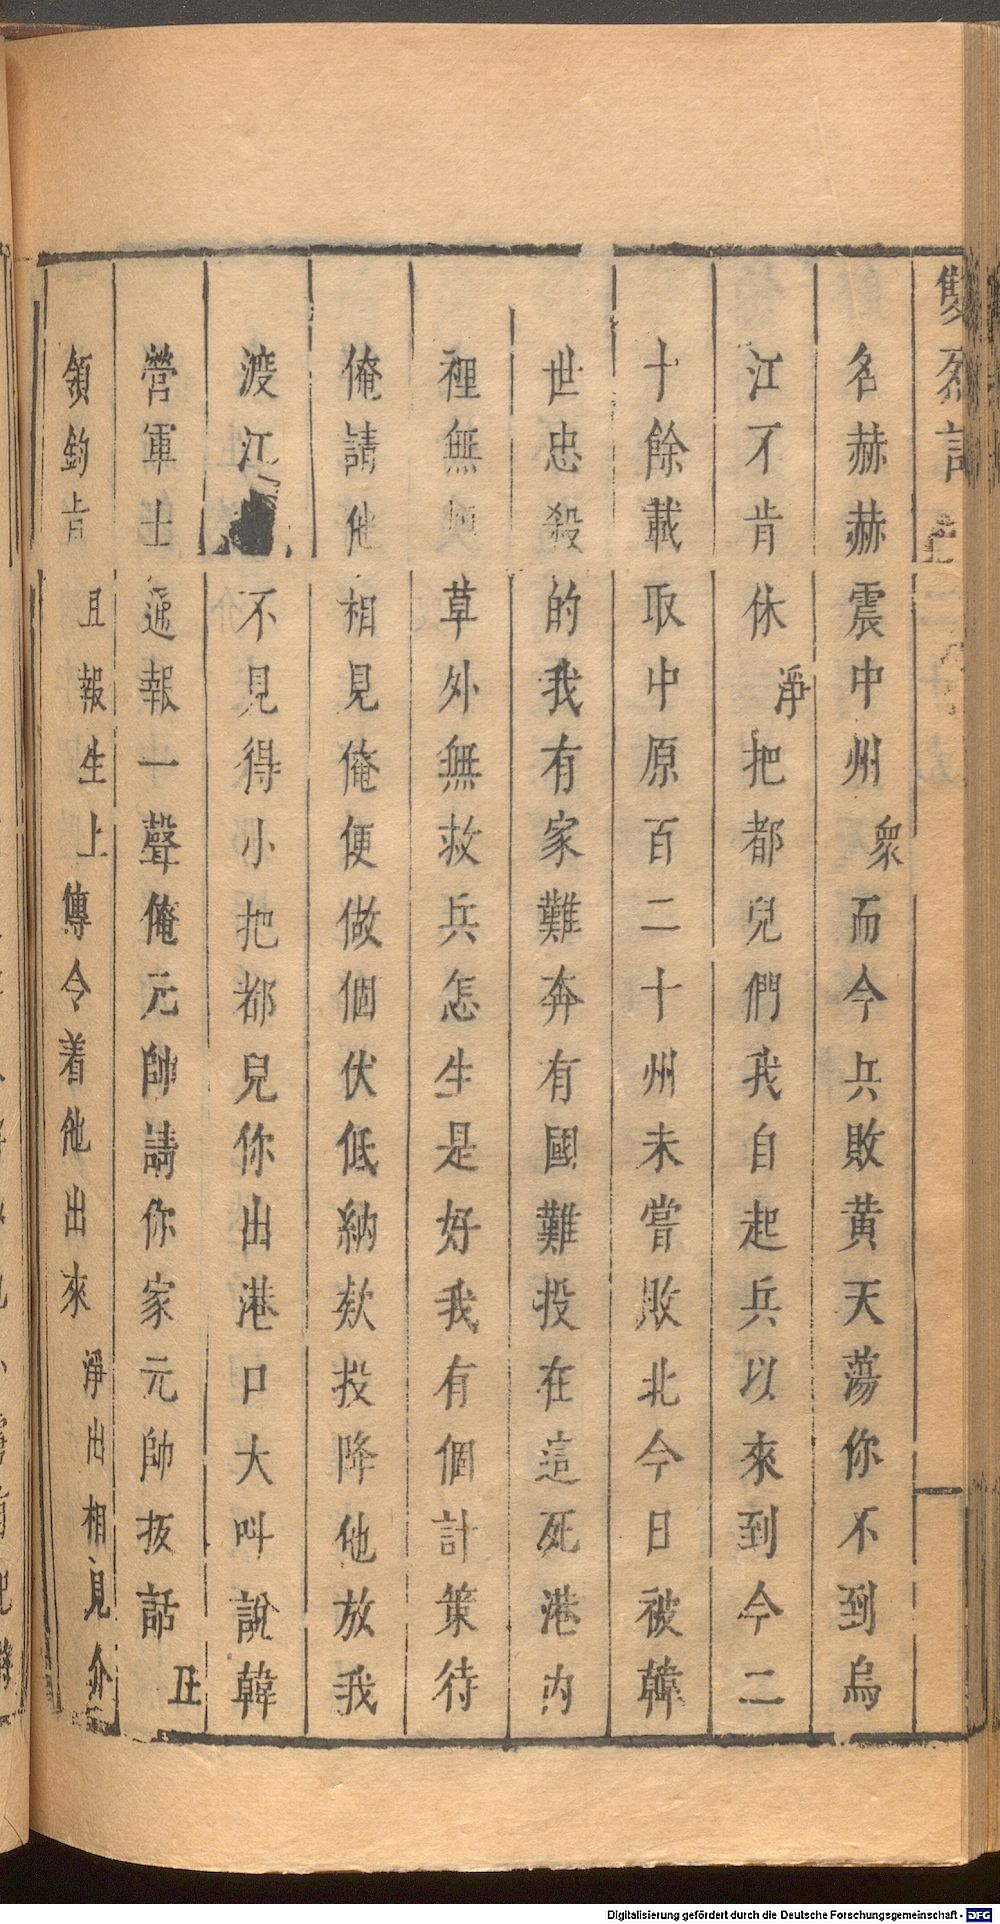 雙烈記
名赫赫震中州衆而今兵敗黄天蕩你不到烏
江不肯休淨把都兒們我自起兵以來到今二
十餘載取中原百二十州未嘗敗北今日被韓
世忠殺的我有家難奔有國難投在這死港内
裡無草外無救兵怎生是好我有個計策待
俺請他相見俺便做個伏低納欵投降他放我
渡江不見得小把都兒你出港口大叫說韓
營軍士逓報一聲俺元帥請你家元帥扳話丑
領鈞肯且報生上傳令着他出來淨出相見介
Digitalisierung gefördert durch die Deutsche Forschungsgemeinschaft - DFG